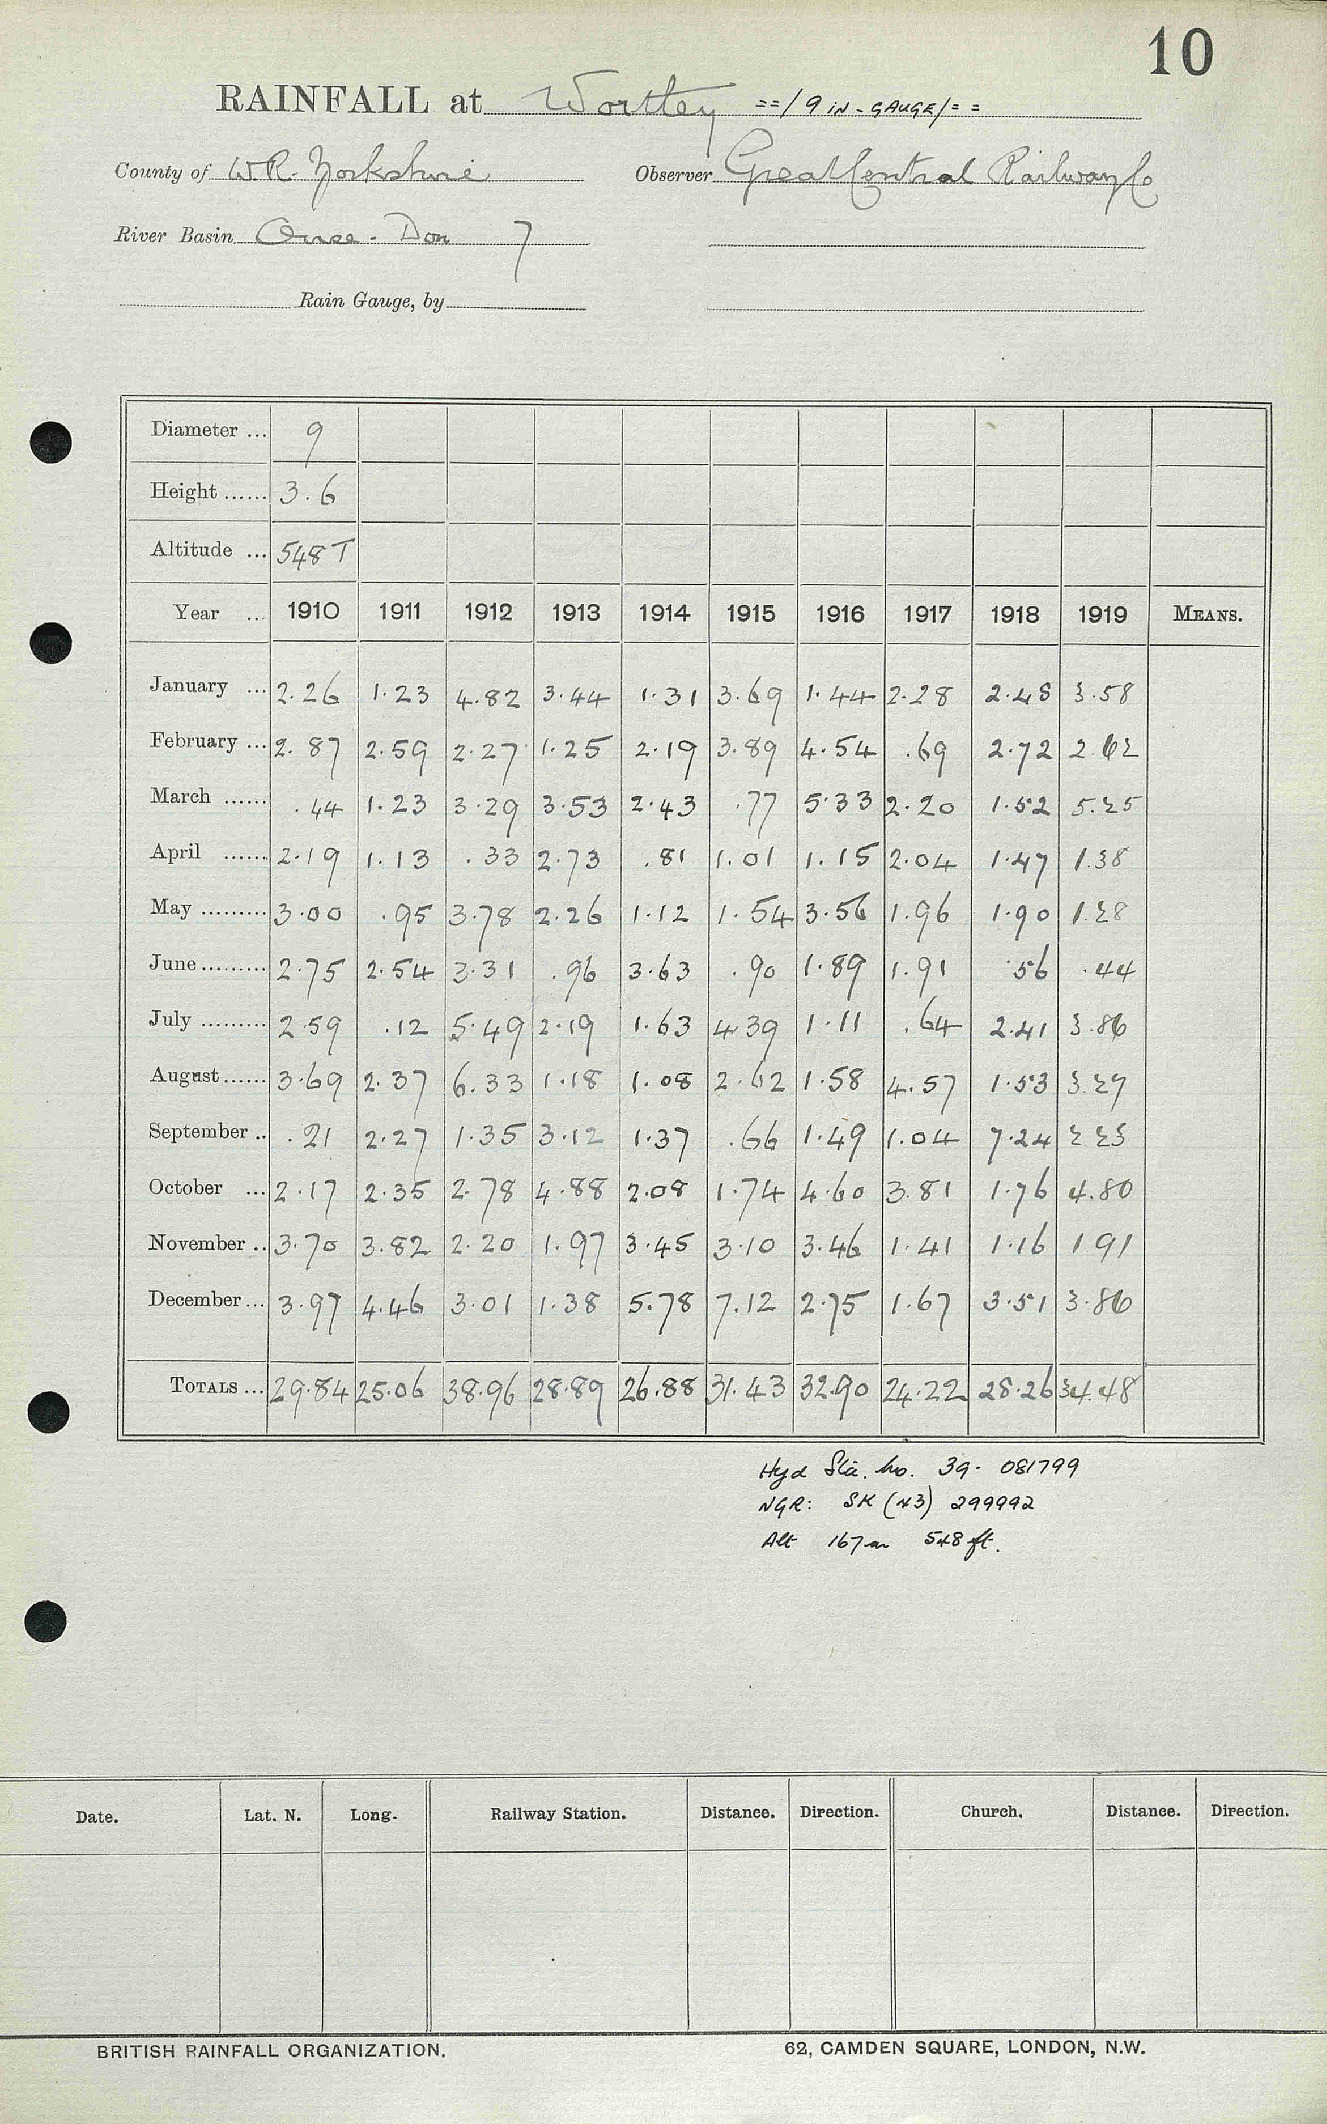 10
RAINFALL at Wortley ==/9 IN-GAUGE/==
County of W.R. Yorkshire Observer Great Central Railway Co
River Basin Ouse - Don 7
Rain Gauge, by
Diameter ... 9
Height ...... 3.6
Altitude ... 548 T
Year ... 1910 1911 1912 1913 1914 1915 1916 1917 1918 1919 MEANS.
January ... 2.26 1.23 4.82 3.44 1.31 3.69 1.44 2.28 2.48 3.58
February ... 2.87 2.59 2.27 1.25 2.19 3.89 4.54 .69 2.72 2.62
March ...... .44 1.23 3.29 3.53 2.43 .77 5.33 2.20 1.52 5.25
April ...... 2.19 1.13 .33 2.73 .81 1.01 1.15 2.04 1.47 1.38
May ......... 3.00 .95 3.78 2.26 1.12 1.54 3.56 1.96 1.90 1.28
June ......... 2.75 2.54 3.31 .96 3.63 .90 1.89 1.91 .56 .44
July ......... 2.59 .12 5.49 2.19 1.63 4.39 1.11 .64 2.41 3.86
August ...... 3.69 2.37 6.33 1.18 1.08 2.62 1.58 4.57 1.53 3.27
September .. .21 2.27 1.35 3.12 1.37 .66 1.49 1.04 7.24 2.23
October ... 2.17 2.35 2.78 4.88 2.08 1.74 4.60 3.81 1.76 4.80
November .. 3.70 3.82 2.20 1.97 3.45 3.10 3.46 1.41 1.16 1.91
December ... 3.97 4.46 3.01 1.38 5.78 7.12 2.75 1.67 3.51 3.86
TOTALS ... 29.84 25.06 38.96 28.89 26.88 31.43 32.90 24.22 28.26 34.48
Hyd Sta. No. 39- 081799
NGR: SK (43) 299992
Alt 167m 548 ft.
Date. Lat. N. Long. Railway Station. Distance. Direction. Church. Distance. Direction.
BRITISH RAINFALL ORGANIZATION. 62, CAMDEN SQUARE, LONDON, N.W.